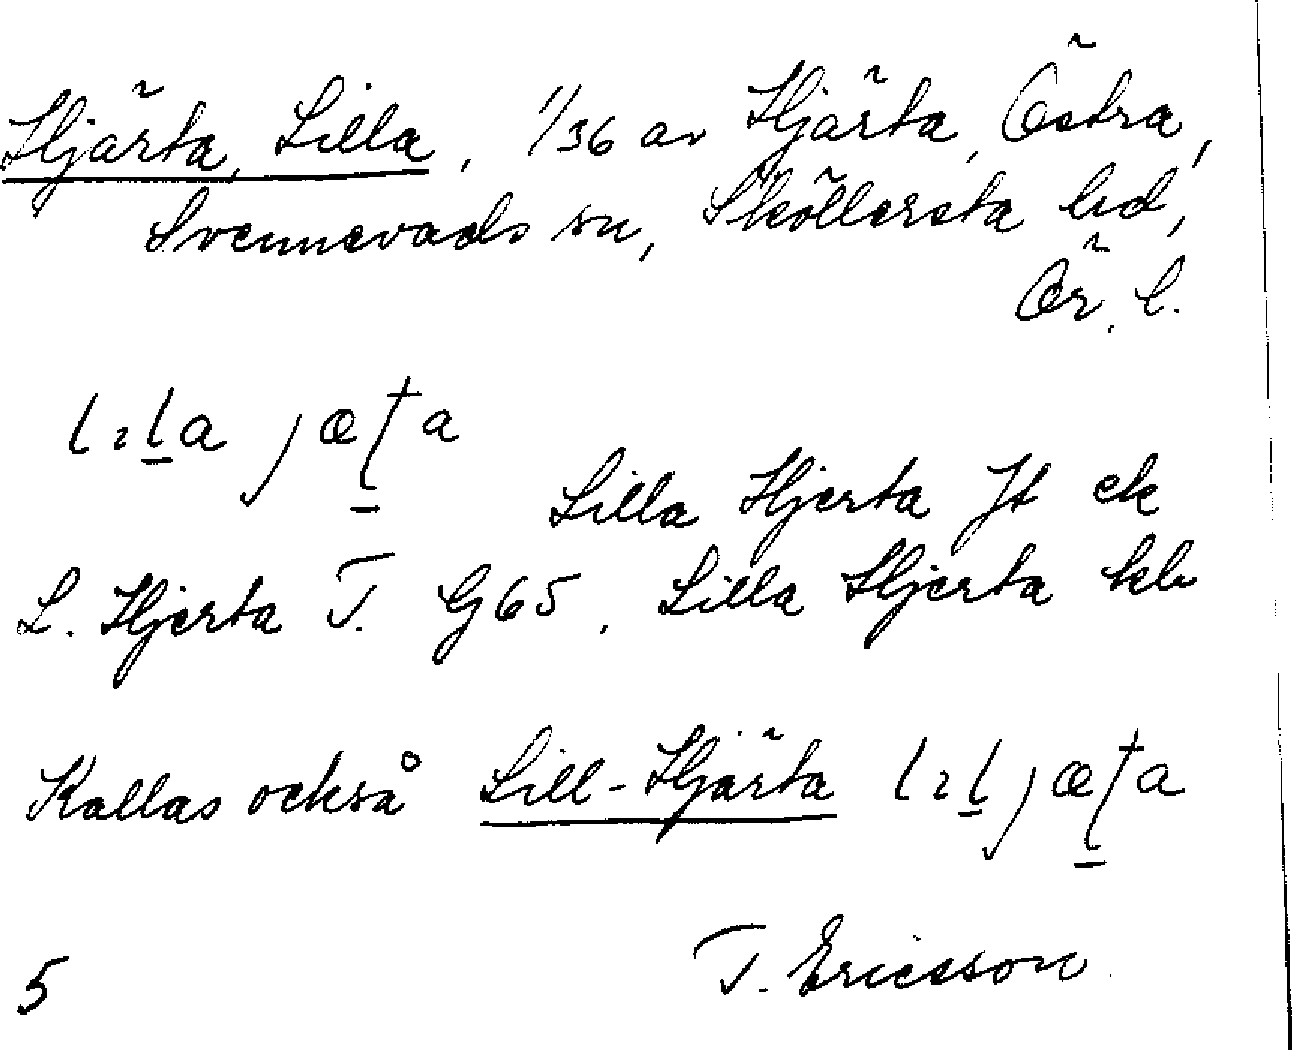 Hjärta, Lilla, 1/36 av Hjärta, Östra,
Svennevads sn, Sköllersta hd,
Ör. l.
lɩla jæʈa
Lilla Hjerta Jt ek
L. Hjerta T. G65, Lilla Hjerta kb
Kallas också Lill-Hjärta lɩljæʈa
T. Ericsson
5